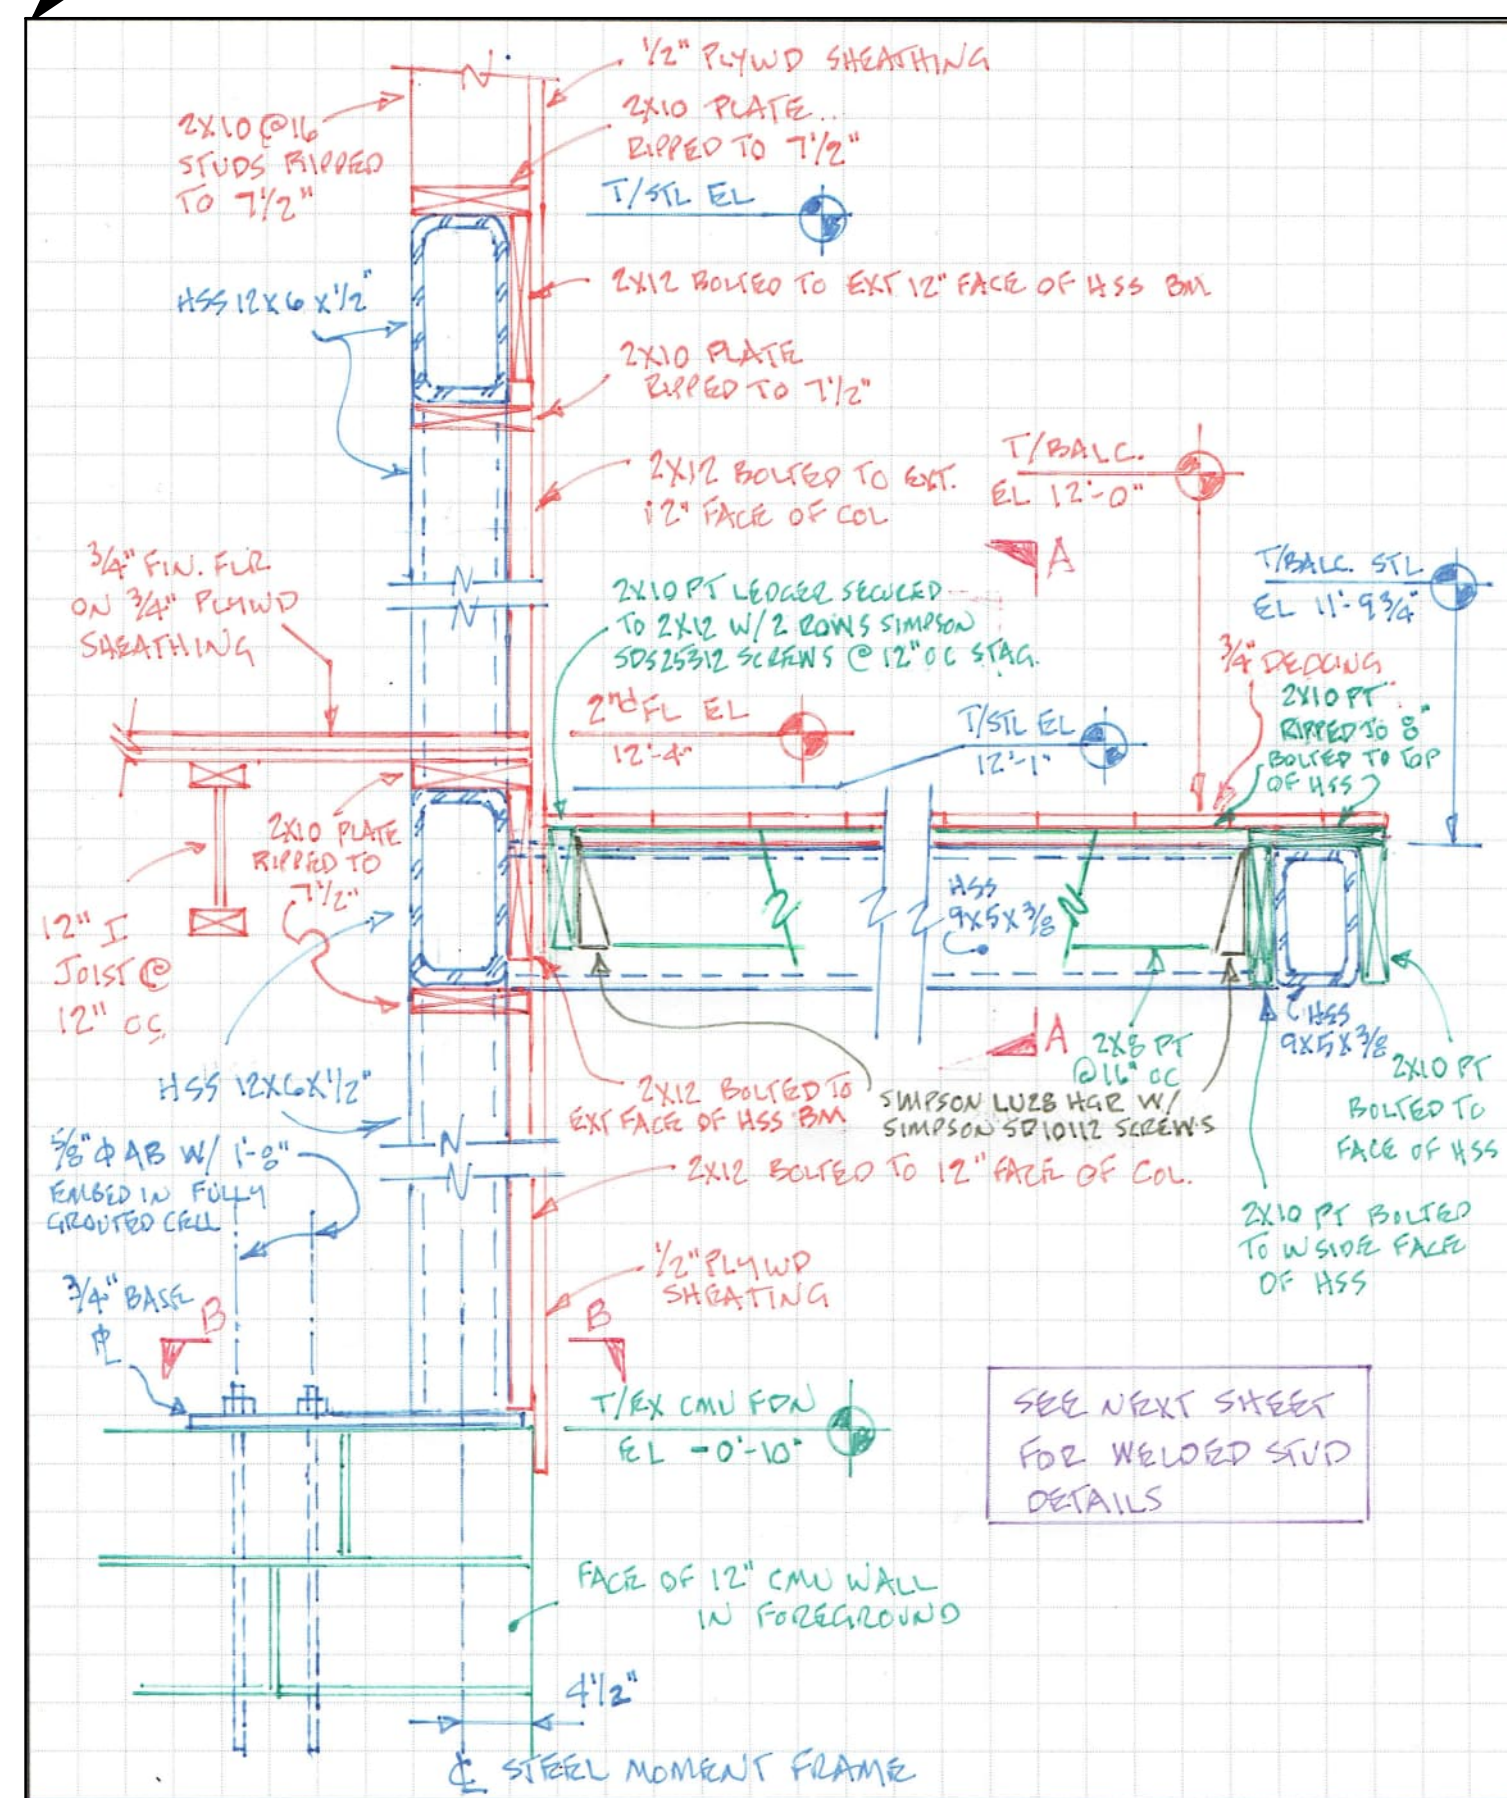 1/2" PLYWD SHEATHING
2X10 @ 16
STUDS RIPPED
TO 7 1/2"
2X10 PLATE
RIPPED TO 7 1/2"
T/STL EL
HSS 12X6 X 1/2"
2X12 BOLTED TO EXT 12" FACE OF HSS BM
2X10 PLATE
RIPPED TO 7 1/2"
2X12 BOLTED TO EXT.
12" FACE OF COL
T/BALC.
EL 12'-0"
3/4" FIN. FLR
ON 3/4" PLYWD
SHEATHING
2X10 PT LEDGER SECURED
TO 2X12 W/2 ROWS SIMPSON
SDS25312 SCREWS @ 12" OC STAG.
A
T/BALC. STL
EL 11'-9 3/4"
2nd FL EL
12'-4"
T/STL EL
12'-1"
3/4" DECKING
2X10 PT
RIPPED TO 8"
BOLTED TO TOP
OF HSS
2X10 PLATE
RIPPED TO
7 1/2"
12" I
JOIST @
12" OC
HSS
9X5X3/8
HSS
9X5X3/8
A
2X8 PT
@ 16" OC
2X10 PT
BOLTED TO
FACE OF HSS
HSS 12X6X1/2"
2X12 BOLTED TO
EXT FACE OF HSS BM
SIMPSON LU28 HGR W/
SIMPSON SD10112 SCREWS
5/8" Φ AB W/ 1'-8"
EMBED IN FULLY
GROUTED CELL
2X12 BOLTED TO 12" FACE OF COL.
2X10 PT BOLTED
TO INSIDE FACE
OF HSS
3/4" BASE
PL
B
1/2" PLYWD
SHEATING
B
T/EX CMU FDN
EL -0'-10"
SEE NEXT SHEET
FOR WELDED STUD
DETAILS
FACE OF 12" CMU WALL
IN FOREGROUND
4 1/2"
CL STEEL MOMENT FRAME